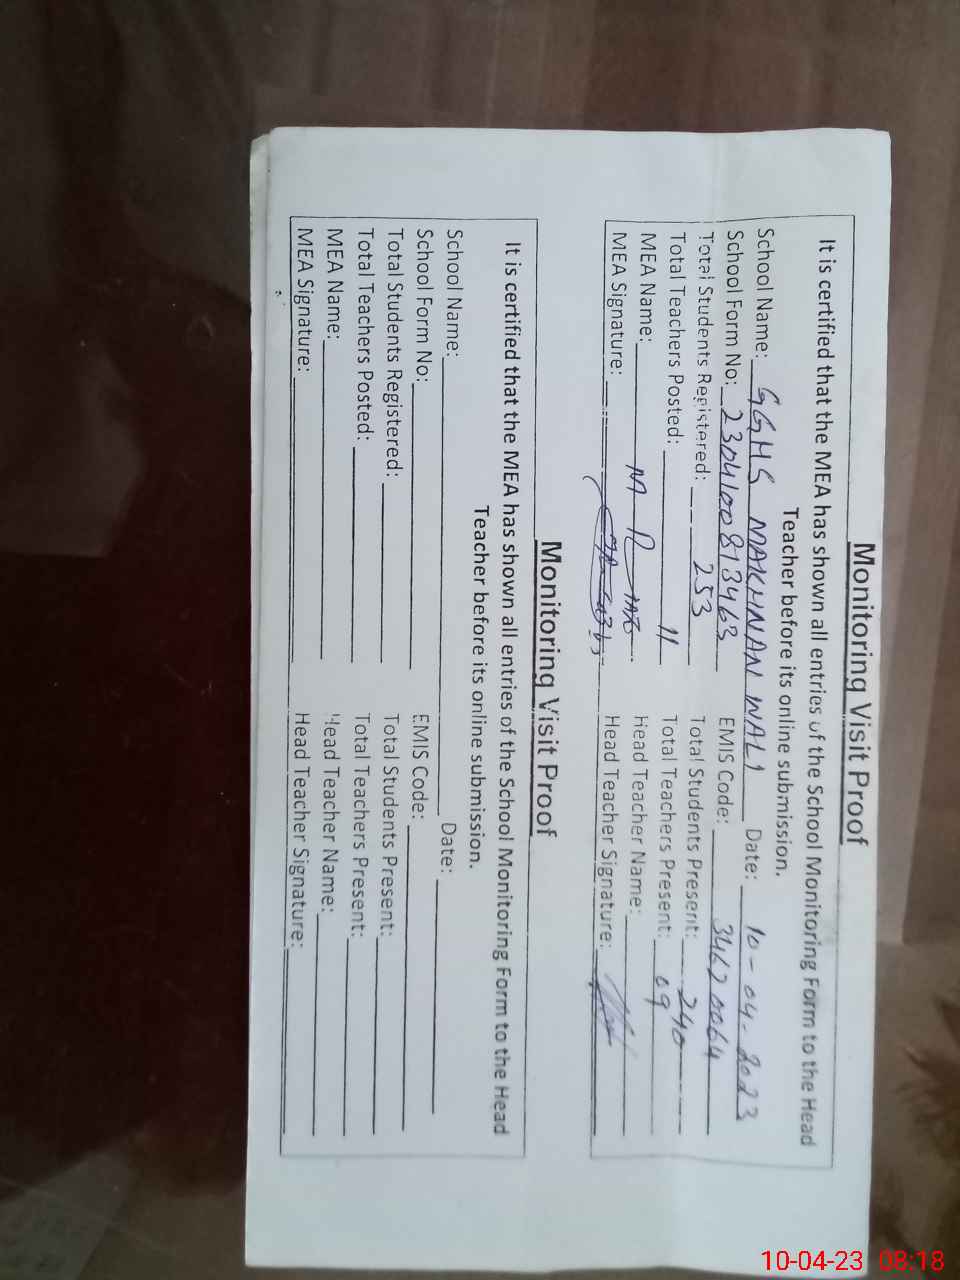 Monitoring Visit Proof
It is certified that the MEA has shown all entries of the School Monitoring Form to the Head
Teacher before its online submission.
School Name: GGHS MAKHNAN WALI Date: 10-04-2023
School Form No: 2304100813463 EMIS Code: 34620064
Total Students Registered: 253 Total Students Present: 240
Total Teachers Posted: 11 Total Teachers Present: 09
MEA Name: M Head Teacher Name:
MEA Signature: Head Teacher Signature:
Monitoring Visit Proof
It is certified that the MEA has shown all entries of the School Monitoring Form to the Head
Teacher before its online submission.
School Name: Date:
School Form No: EMIS Code:
Total Students Registered: Total Students Present:
Total Teachers Posted: Total Teachers Present:
MEA Name: Head Teacher Name:
MEA Signature: Head Teacher Signature:
10-04-23 08:18